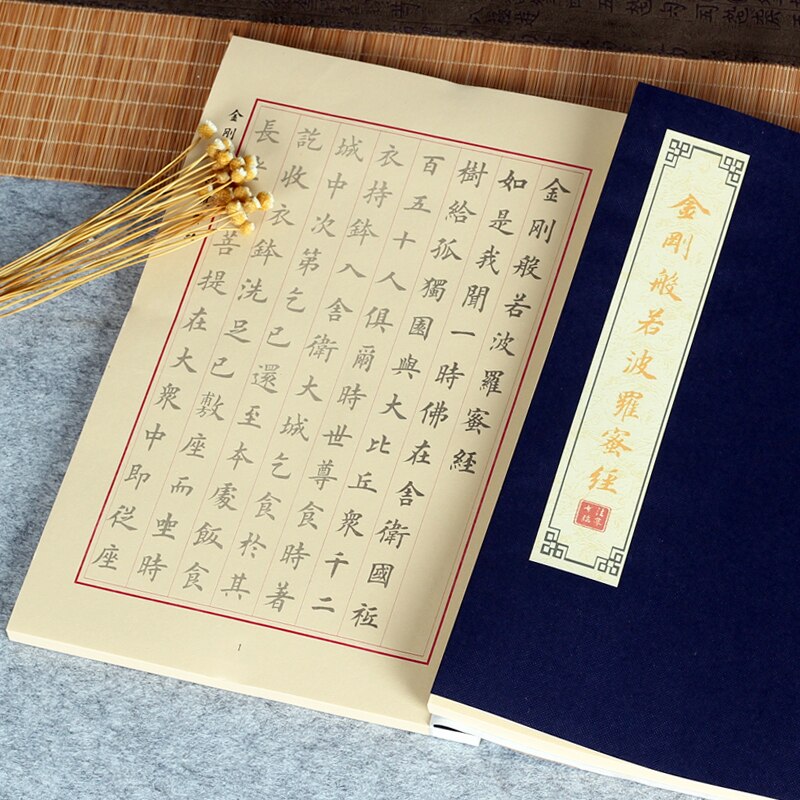 金剛般若波羅蜜經
如是我聞一時佛在舍衛國祇
樹給孤獨園與大比丘衆千二
百五十人俱爾時世尊食時著
衣持鉢入舍衛大城乞食於其
城中次第乞已還至本處飯食
訖收衣鉢洗足已敷座而坐時
長菩提在大衆中即從座
金剛
1
金剛般若波羅蜜經